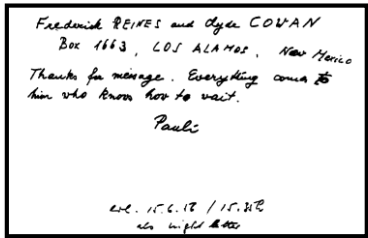 Frederick REINES and Clyde COWAN
Box 1663, LOS ALAMOS, New Mexico
Thanks for message. Everything comes to
him who knows how to wait.
Pauli
als night letter